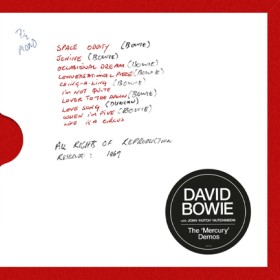 7½
MONO
SPACE ODDITY (BOWIE)
JANINE (BOWIE)
OCCASIONAL DREAM (BOWIE)
CONVERSATIONAL PIECE (BOWIE)
CHING-A-LING (BOWIE)
I'M NOT QUITE
LOVER TO THE DAWN (BOWIE)
LOVE SONG (DUNCAN)
WHEN I'M FIVE (BOWIE)
LIFE IS A CIRCUS
ALL RIGHTS OF REPRODUCTION
RESERVE : 1969
DAVID
BOWIE
WITH JOHN 'HUTCH' HUTCHINSON
The 'Mercury'
Demos